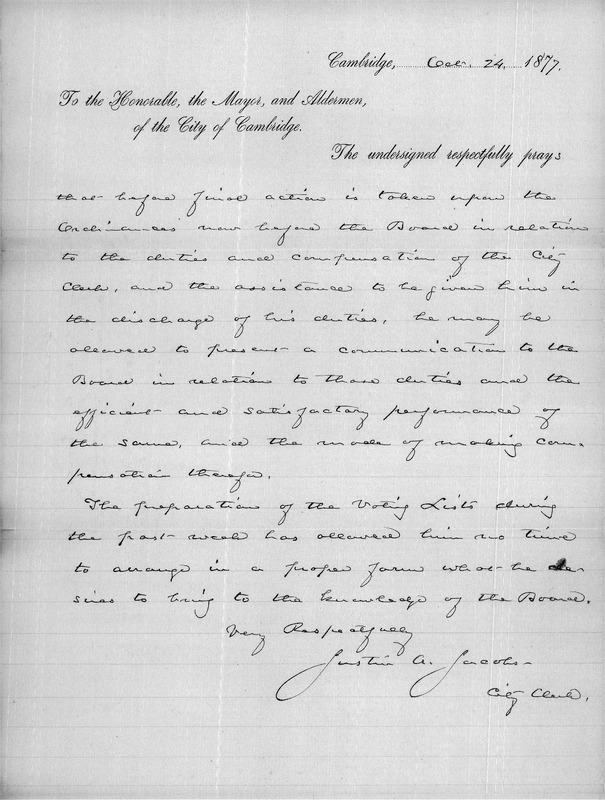 Cambridge, Oct. 24, 1877.
To the Honorable, the Mayor, and Aldermen,
of the City of Cambridge.
The undersigned respectfully prays
that before final action is taken upon the
Ordinances now before the Board in relation
to the duties and compensation of the City
Clerk, and the assistance to be given him in
the discharge of his duties, he may be
allowed to present a communication to the
Board in relation to those duties and the
efficient and satisfactory performance of
the same, and the mode of making com-
pensation therefor.
The preparation of the Voting Lists during
the past week has allowed him no time
to arrange in a proper form what he de-
sires to bring to the knowledge of the Board.
Very Respectfully
Justin A. Jacobs
City Clerk.